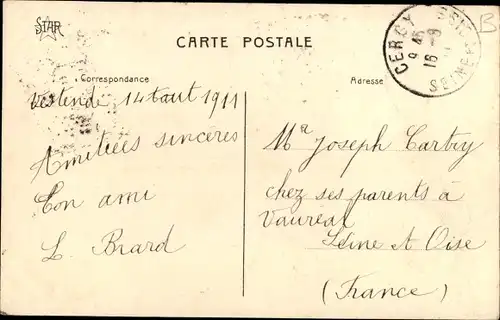 STAR
CARTE POSTALE
Correspondance
Adresse
CERGY
9 45
16 -8
SEINE
B
14 Aout 1911
Amitiées sincères
Ton ami
L. Brard
Mr Joseph Cartry
chez ses parents à
Vauréal
Seine et Oise
(France)